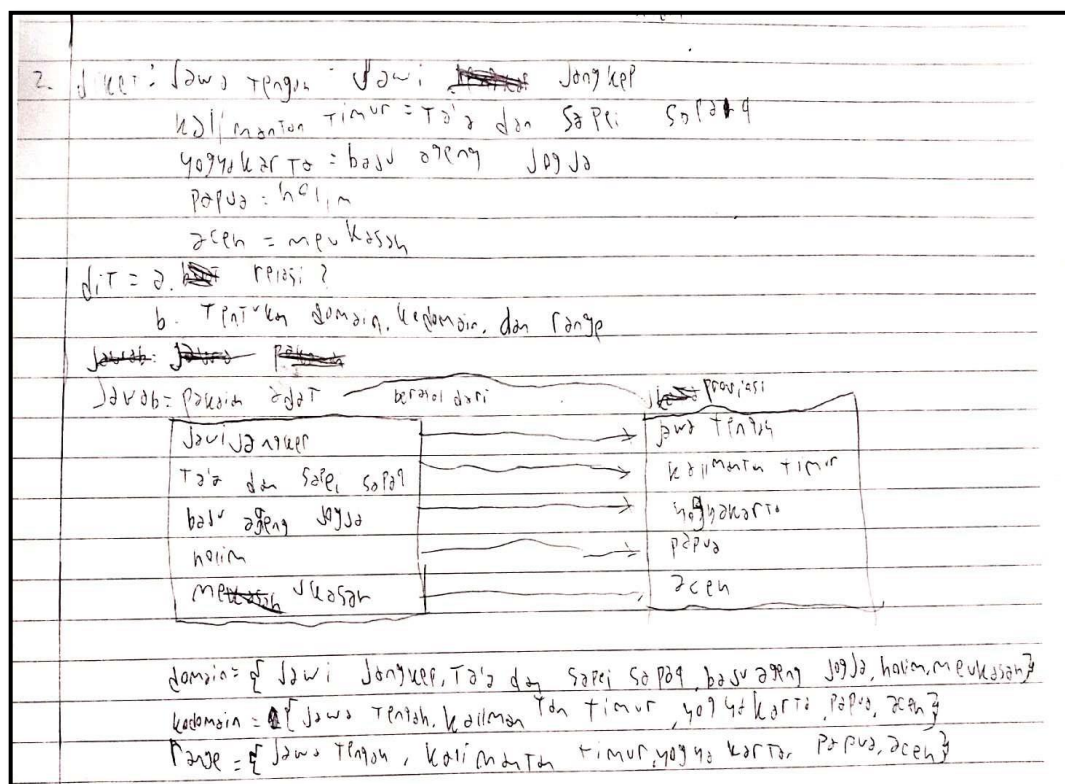 2. diket: Jawa Tengah = Jawi Jangkep
kalimantan Timur = Ta'a dan Sapei Sapaq
yogyakarta = baju ageng Jogja
papua = holim
aceh = meukasah
dit = a. relasi ?
b. Tentukan domain, kodomain, dan range
Jawab = pakaian adat berasal dari provinsi
Jawi Jangkep Jawa Tengah
Ta'a dan Sapei Sapaq kalimantan timur
baju ageng Jogja yogyakarta
holim papua
meukasah aceh
domain = { Jawi Jangkep, Ta'a dan Sapei Sapaq, baju ageng Jogja, holim, meukasah}
kodomain = { Jawa Tengah, kalimantan timur, yogyakarta, papua, aceh}
range = { Jawa Tengah, kalimantan timur, yogyakarta, papua, aceh}